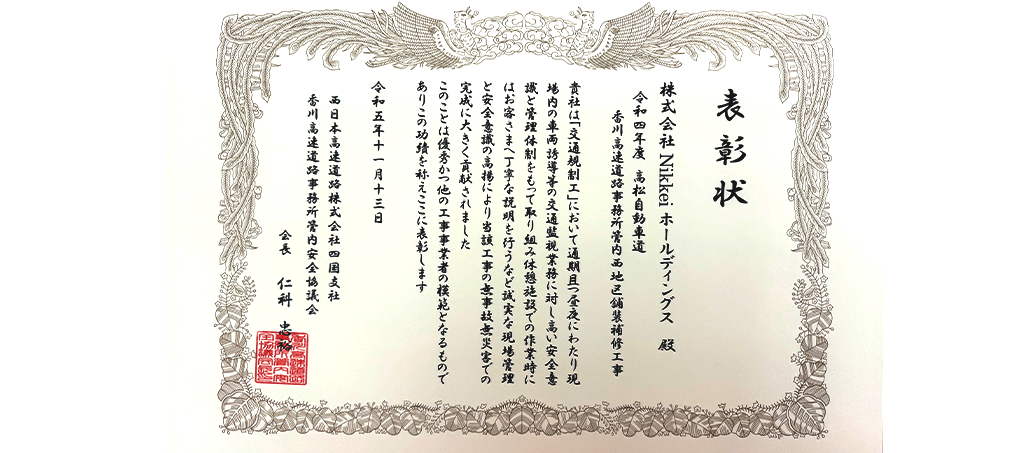 表彰状
株式会社 Nikkei ホールディングス 殿
令和四年度 高松自動車道
香川高速道路事務所管内西地区舗装補修工事
貴社は「交通規制工」において通期且つ昼夜にわたり現
場内の車両誘導等の交通監視業務に対し高い安全意
識と管理体制をもって取り組み休憩施設での作業時に
はお客さまへ丁寧な説明を行うなど誠実な現場管理
と安全意識の高揚により当該工事の無事故無災害での
完成に大きく貢献されました
このことは優秀かつ他の工事事業者の模範となるもので
ありこの功績を称えここに表彰します
令和五年十一月十三日
西日本高速道路株式会社四国支社
香川高速道路事務所管内安全協議会
会長 仁科 忠裕